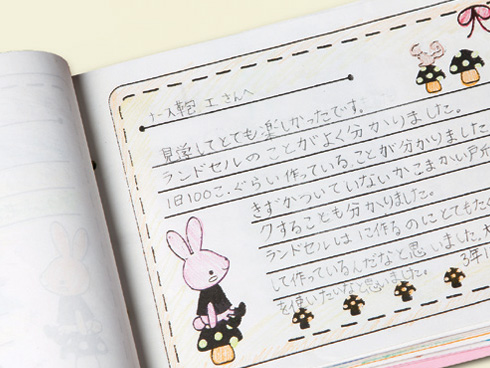 ナース鞄工さんへ
見学してとても楽しかったです。
ランドセルのことがよく分かりました。
1日100こぐらい作っていることが分かりました
きずがついていないかこまかい戸斤
クすることも分かりました。
ランドセルは に作るのにとてもたく
して作っているんだなと思いました。
を使いたいなと思いました。
3年1